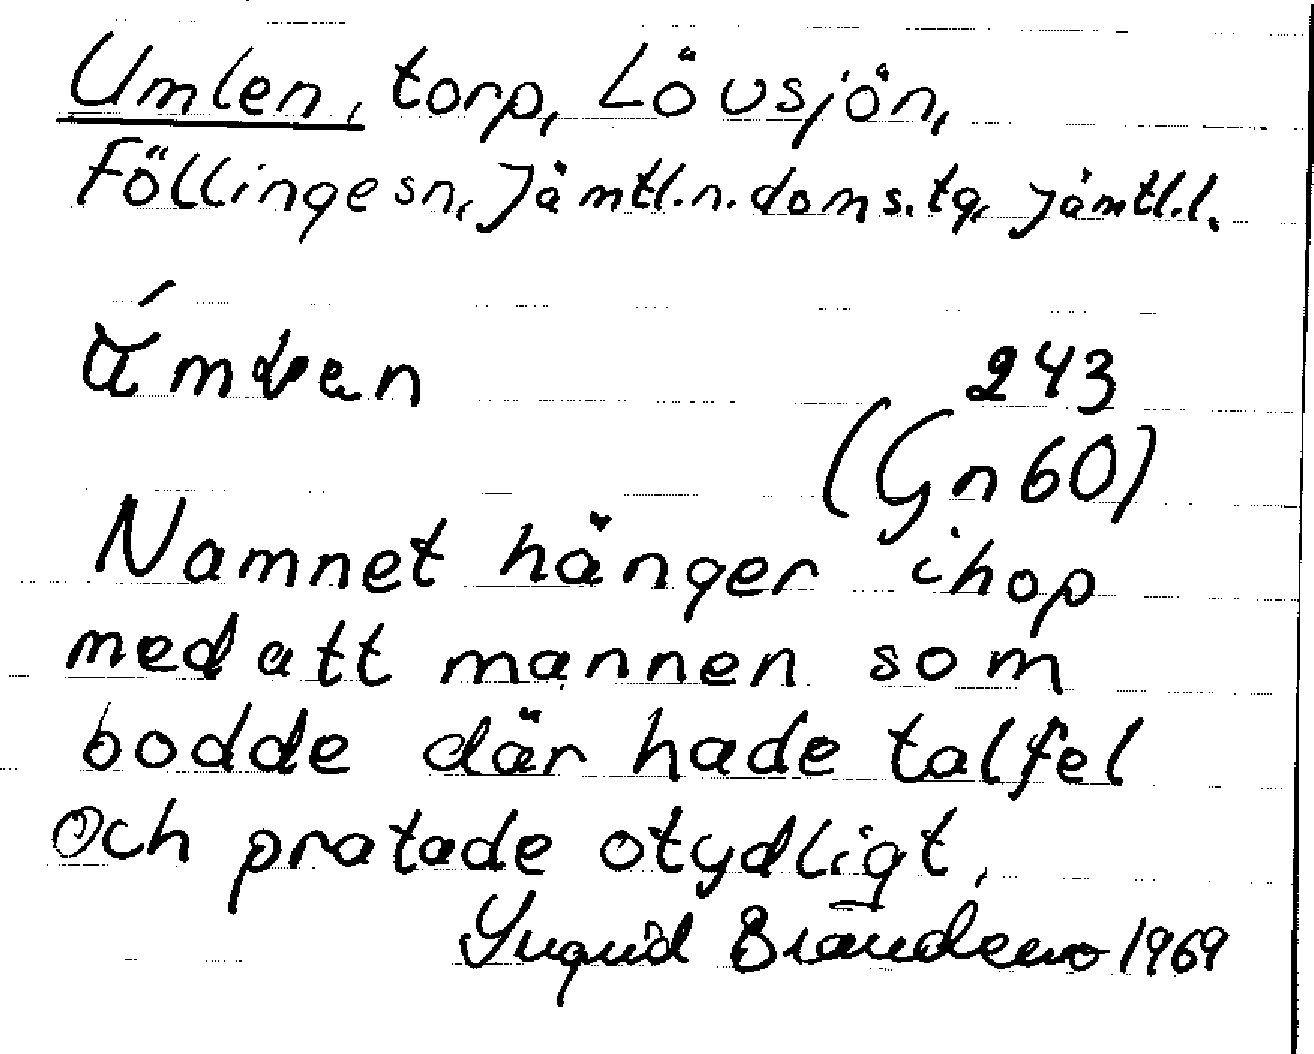 Umlen, torp, Lövsjön,
Föllinge sn, Jämtl.n.doms.tg, Jämtl.l.
243
(Gn 60)
Namnet hänger ihop
med att mannen som
bodde där hade talfel
och pratade otydligt.
Ingrid 1969